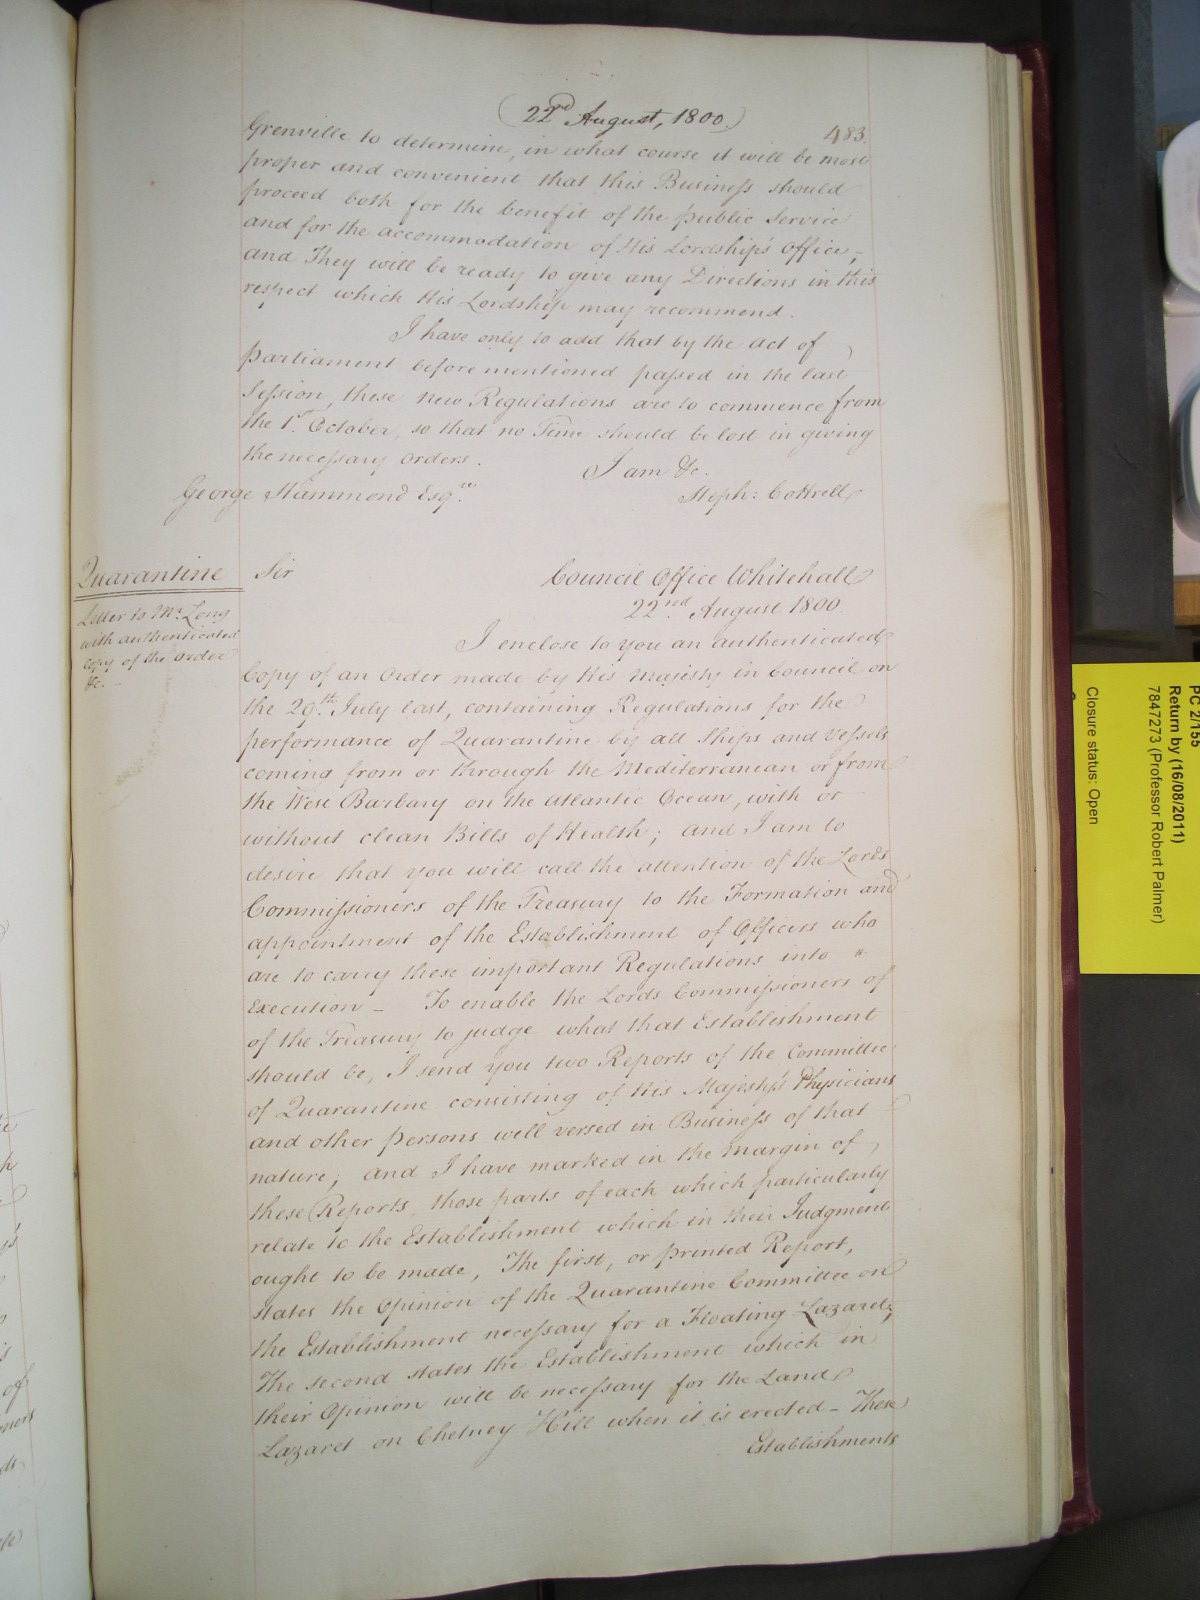 (22nd August, 1800.)
483.
Grenville to determine, in what course it will be most
proper and convenient that this Business should
proceed both for the benefit of the public Service
and for the accommodation of His Lordship's Office,
and They will be ready to give any Directions in this
respect which His Lordship may recommend.
I have only to add that by the Act of
Parliament before mentioned passed in the last
Session, these New Regulations are to commence from
the 1st October, so that no Time should be lost in giving
the necessary Orders.
I am &c.
George Hammond Esqre
Steph: Cottrell
Quarantine
Letter to Mr Long
with authenticated
copy of the Order
&c. -
Sir
Council Office Whitehall
22nd August 1800.
I enclose to you an authenticated
Copy of an Order made by His Majesty in Council on
the 29th July last, containing Regulations for the
performance of Quarantine by all Ships and Vessels
coming from or through the Mediterranean or from
the West Barbary on the Atlantic Ocean, with or
without clean Bills of Health; and I am to
desire that you will call the attention of the Lords
Commissioners of the Treasury to the Formation and
appointment of the Establishment of Officers who
are to carry these important Regulations into "
Execution - To enable the Lords Commissioners of
of the Treasury to judge what that Establishment
should be, I send you two Reports of the Committee
of Quarantine consisting of His Majesty's Physicians
and other persons well versed in Business of that
nature; and I have marked in the Margin of
these Reports, those parts of each which particularly
relate to the Establishment which in their Judgment
ought to be made, The first, or printed Report,
states the Opinion of the Quarantine Committee on
the Establishment necessary for a Floating Lazaret;
The second states the Establishment which in
their Opinion will be necessary for the Land
Lazaret on Chetney Hill when it is erected - These
Establishments
PC 2/155
Return by (16/08/2011)
7847273 (Professor Robert Palmer)
Closure status: Open